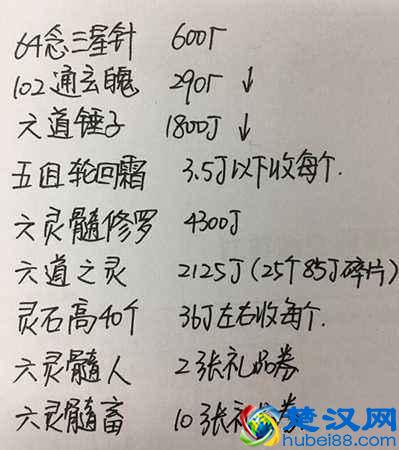 64念三星针 600J
102通玄魄 290J ↓
六道锤子 1800J ↓
五团轮回霜 3.5J以下收每个.
六灵髓修罗 4300J
六道之灵 2125J(25个85J碎片)
灵石高40个 36J左右收每个.
六灵髓人 2张礼品券
六灵髓畜 10张礼 券
楚汉网
hubei88.com